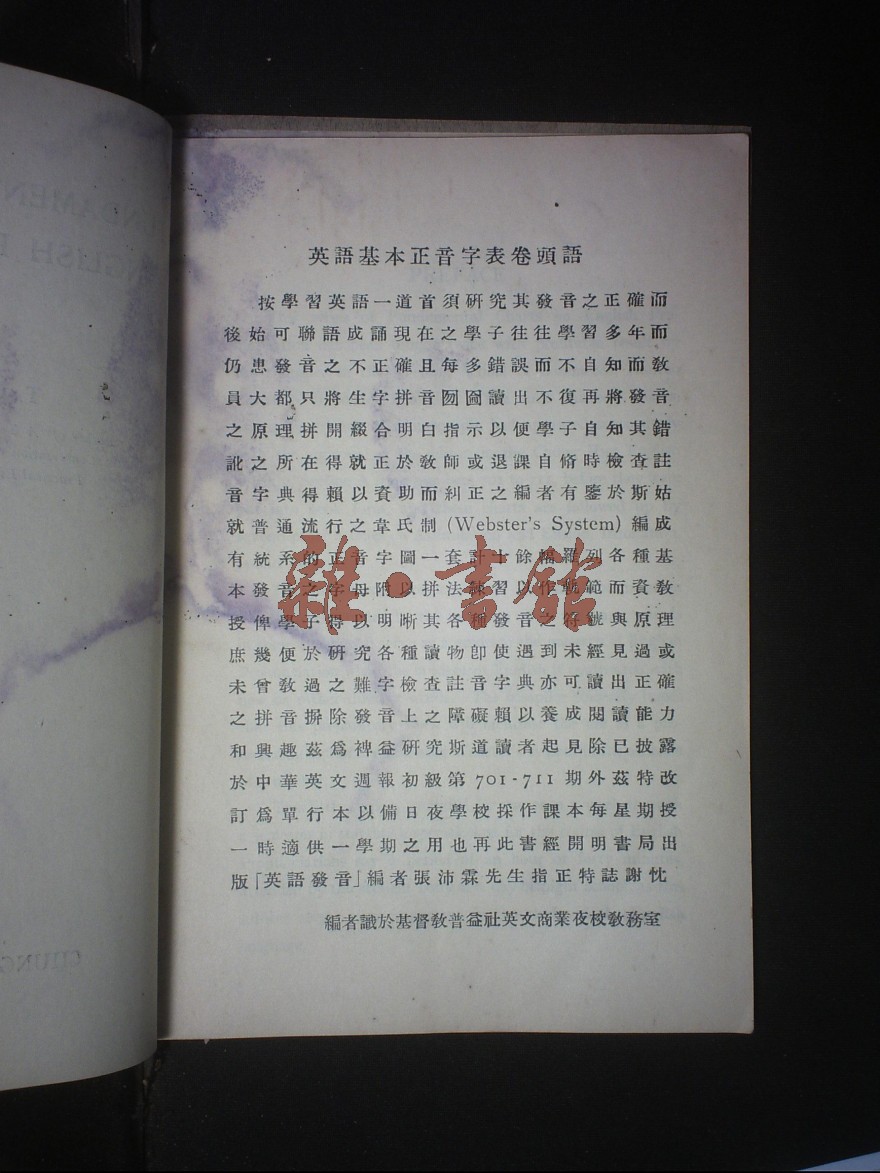 英語基本正音字表卷頭語
按學習英語一道首須研究其發音之正確而
後始可聯語成誦現在之學子往往學習多年而
仍患發音之不正確且每多錯誤而不自知而敎
員大都只將生字拼音囫圇讀出不復再將發音
之原理拼開綴合明白指示以便學子自知其錯
訛之所在得就正於敎師或退課自脩時檢查註
音字典得賴以資助而糾正之編者有鑒於斯姑
就普通流行之韋氏制(Webster's System)編成
有統系的正音字圖一套計十餘幅羅列各種基
本發音之字母附以拼法練習以作軌範而資敎
授俾學子得以明晰其各種發音之符號與原理
庶幾便於研究各種讀物卽使遇到未經見過或
未曾敎過之難字檢查註音字典亦可讀出正確
之拼音摒除發音上之障礙賴以養成閱讀能力
和興趣茲爲裨益研究斯道讀者起見除已披露
於中華英文週報初級第701-711期外茲特改
訂爲單行本以備日夜學校採作課本每星期授
一時適供一學期之用也再此書經開明書局出
版「英語發音」編者張沛霖先生指正特誌謝忱
編者識於基督敎普益社英文商業夜校敎務室
雜·書館
NDAMEN
GLISH
CHUNG